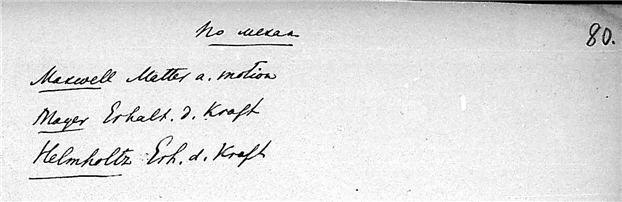 По механ 80.
Maxwell Matter a. motion
Mayer Erhalt. d. Kraft
Helmholtz Erh. d. Kraft